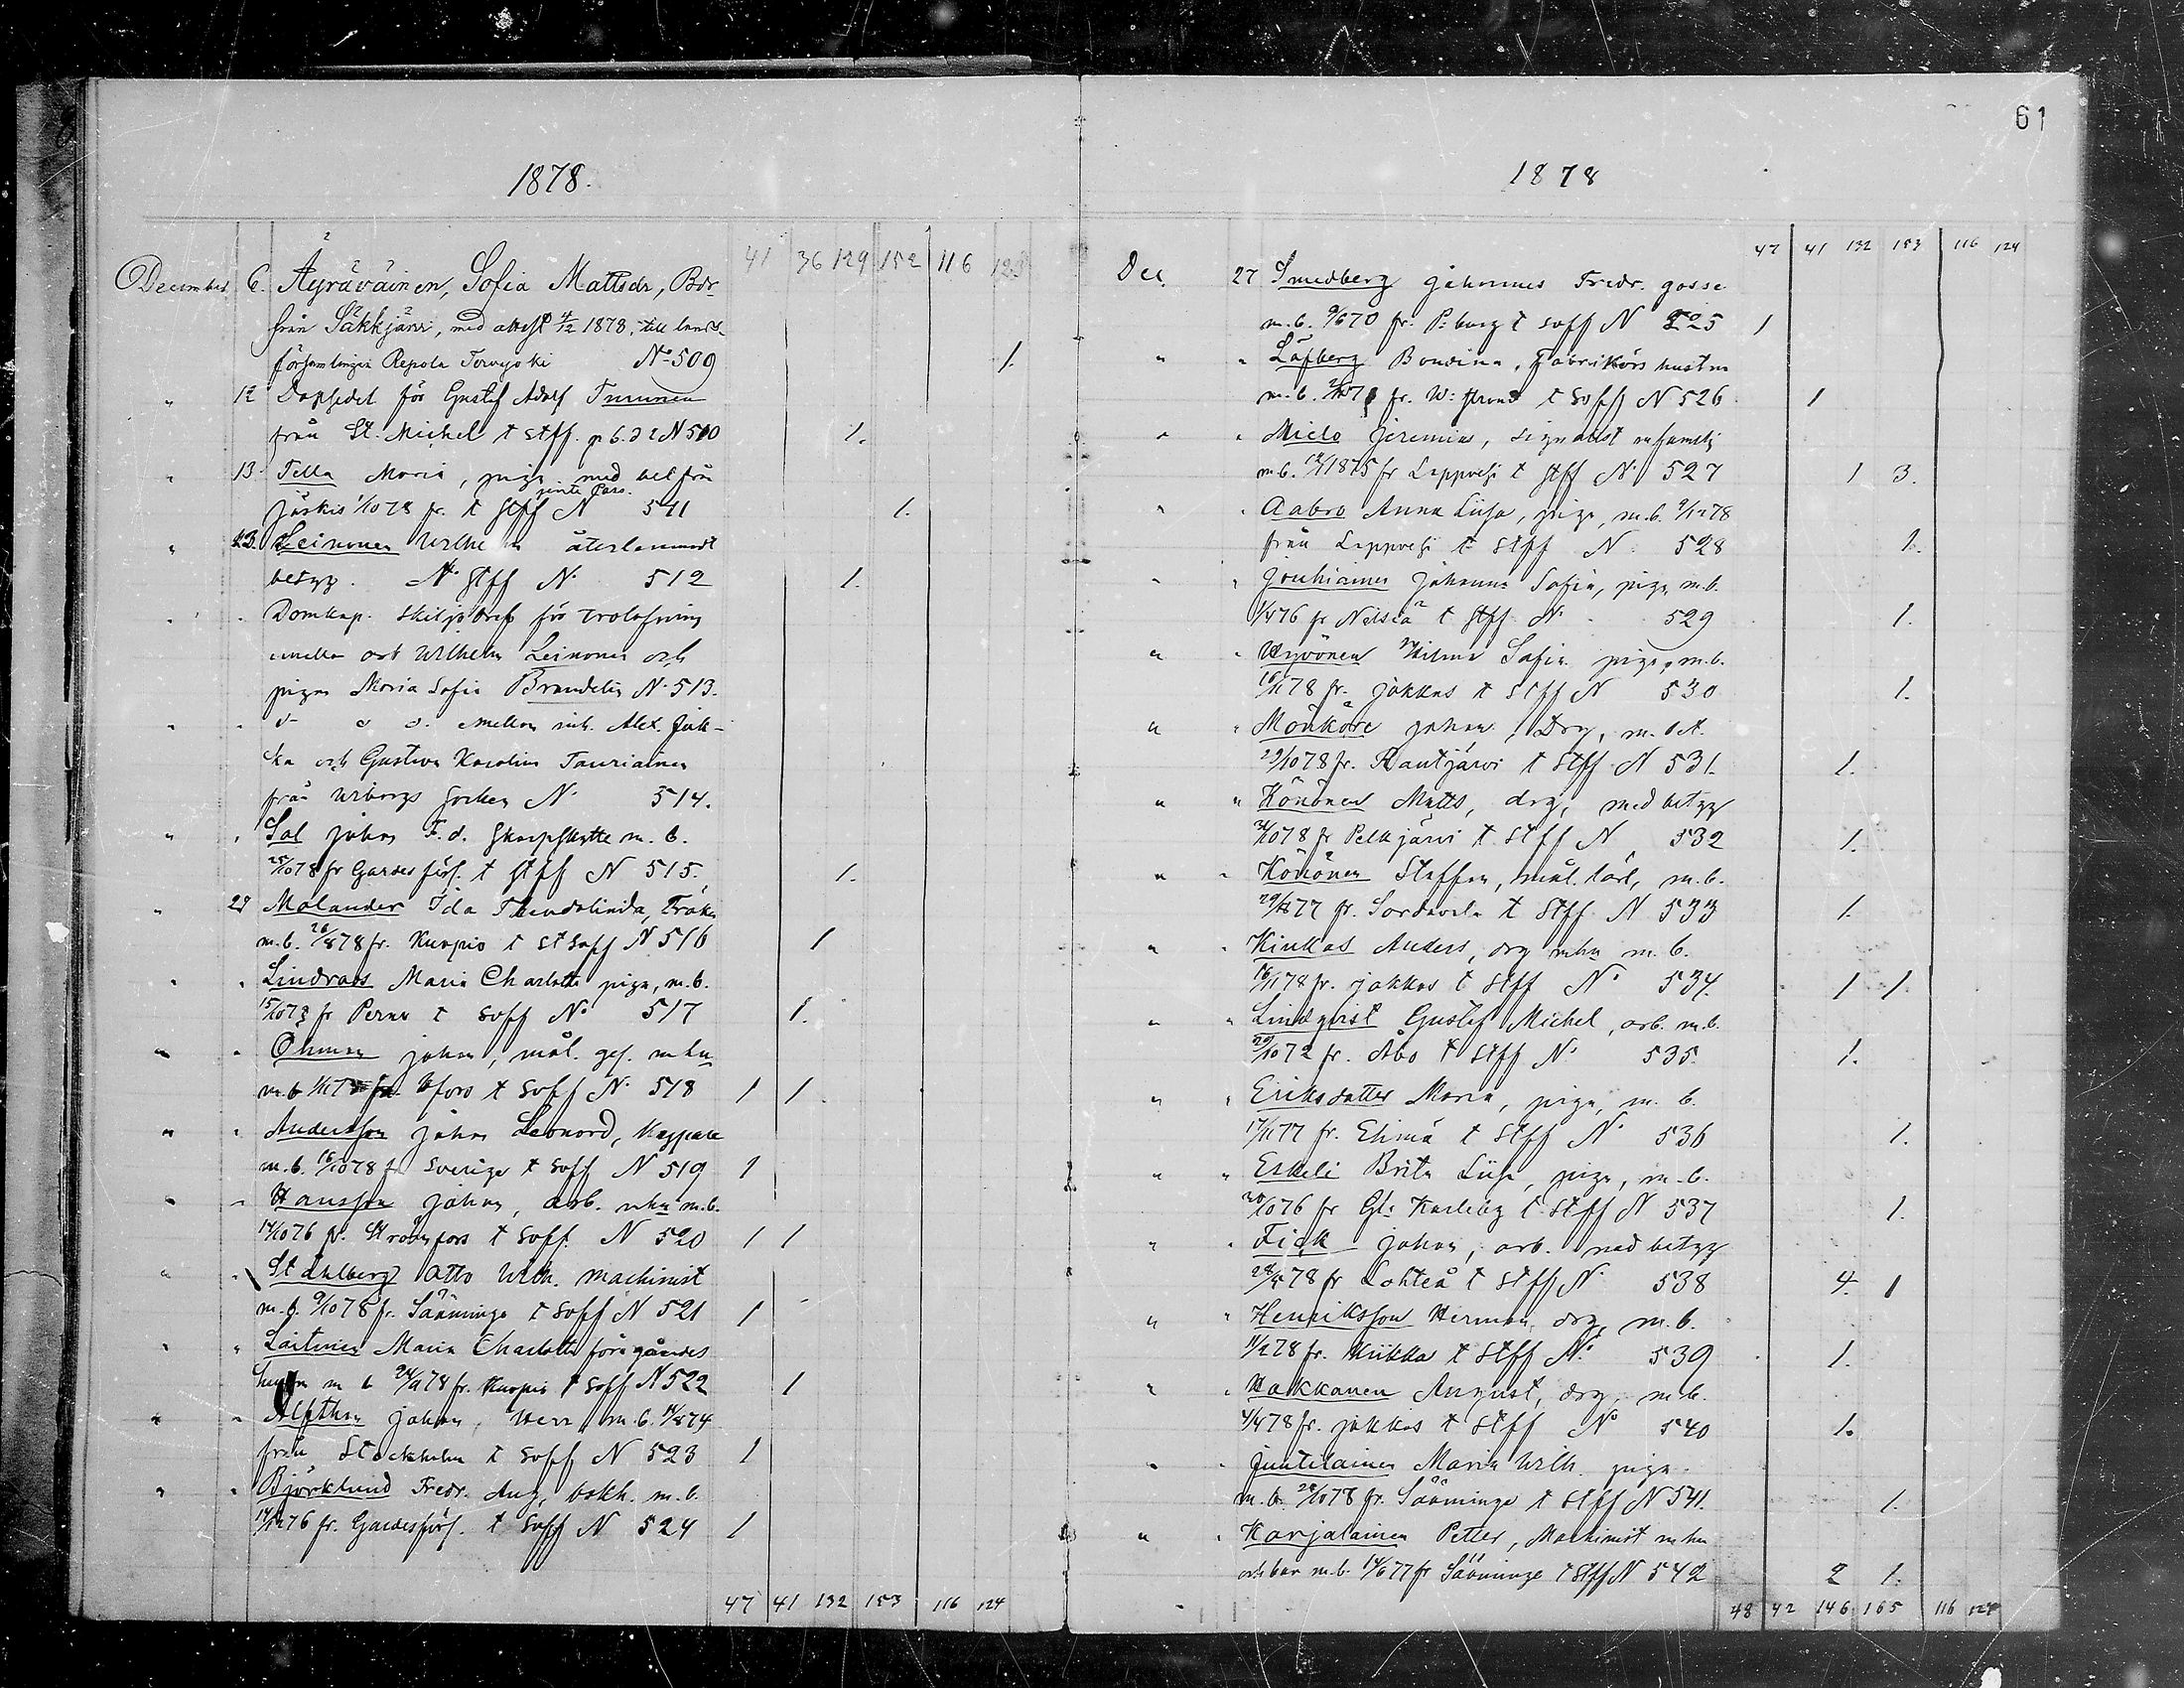 1878.
41 36 129 152 116 123
December 6. Äyräväinen, Sofia Mattsdr, Bdr
från Säkkjärvi, med attest 4/12 1878, till lands
församlingen Repola Torvyoki No 509 1.
" 12 Dopsedel för Gustaf Adolf Tmunen
från St. Michel t stff. N 510 1.
" 13. Tella Maria, piga med bet från
Jäskis 1/1078 fr. t stff N 511 1.
" 23. Leinonen Wilhelm återlemnadt
betyg. t stff N. 512 1.
" " Domkap. skiljobref för trolofning
emellan arb Wilhelm Leinonen och
pigan Maria Sofia Brandelin N. 513.
" " d- o o. emellan inh. Alex. Juk-
ka och Gustava Karolina Tauriainen
från Wiborgs Socken N. 514.
" " Sal Johan F.d. Skarpskytte m. b.
25/1078 fr Gardes förs. t stff N 515. 1.
" 27 Malander Ida Theudolinda, Fröken
m.b. 26/878 fr. Kuopio t st soff N. 516 1
" " Lindroos Maria Charlotta piga, m.b.
15/1073 fr Perno t soff No 517 1.
" " Öhman Johan, mål. ges. m hu
m.b. fors t soff N. 518 1 1
" " Andersson Johan Leonard, Kappare
m.b. 16/1078 fr Sverige t soff N 519 1
" " Hansson Johan, arb. mhu m.b.
14/1076 fr. Strömfors t soff. N 520 1 1
" " Ståhlberg Otto Wilh. machinist
m.b. 9/1078 fr. Sääminge t soff N 521 1
" " Laitinen Maria Charlotta föregåendes
hustru m b 24/978 fr. Kuopio t soff N 522 1
" " Alfthan Johan, Herr m.b. 14/874
från Stockholm t soff N 523 1
" " Björklund Fredr. Aug, bokh. m.b.
14/1276 fr. Gardesförs. t soff N 524 1
47 41 132 153 116 124
61
1878
47 41 132 153 116 124
Dec. 27 Smedberg Johannes Fredr. gosse
m.b. 9/670 fr. P:burg t soff N 525 1
" " Löfberg Bondina, Fabrikörs hustru
m.b. fr. W:strand t soff N 526 1
" " Mielo Jeremias, signalist m familj
m.b. 1875 fr Lappvesi t stff N. 527 1 3.
" " Aabro Anna Liisa, piga, m.b. 9/1278
från Lappvesi t stff N. 528 1.
" " Jouhiainen Johanna Sofia, piga m.b.
1/476 fr Nilsiä t stff N. 529 1.
" " Hyvönen Wilma Sofia piga, m.b.
16/1178 fr. Jakkas t stff N 530 1.
" " Mönkäre Johan, Drg, m.bet.
29/1078 fr. Rautjärvi t stff N 531. 1.
" " Könönen Matts, drg, med betyg
31/1078 fr Pelkjärvi t stff N 532 1.
" " Könönen Staffan, mål. lärl, m.b.
fr. Sordavala t stff N 533 1.
" " Kinkas Anders, drg mhu m.b.
16/1178 fr. Jakkas t stff No 534. 1 1.
" " Lindqvist Gustaf Michel, arb. m.b.
29/1072 fr. Åbo t stff No 535. 1.
" " Eriksdotter Maria, piga, m. b.
17/1177 fr. Elimä t stff No 536 1.
" " Eskeli Brita Liisa, piga, m.b.
20/1076 fr Gl: Karleby t stff N 537 1.
" " Fick Johan, arb. med betyg
28/878 fr Lohteå t stff N. 538 4. 1
" " Henriksson Herman, drg, m.b.
11/1278 fr. Kiikka t stff No 539 1.
" " Hakkanen August, drg, m.b.
4/478 fr. Jakkas t stff No 540 1.
" " Juntilainen Maria Wilh. piga
m.b. 28/1078 fr. Sääminge t stff N 541. 1.
" " Karjalainen Petter, Machinist mhu
och bar m.b. 14/677 fr Sääminge t stff N 542 2 1.
48 42 146 165 116 124